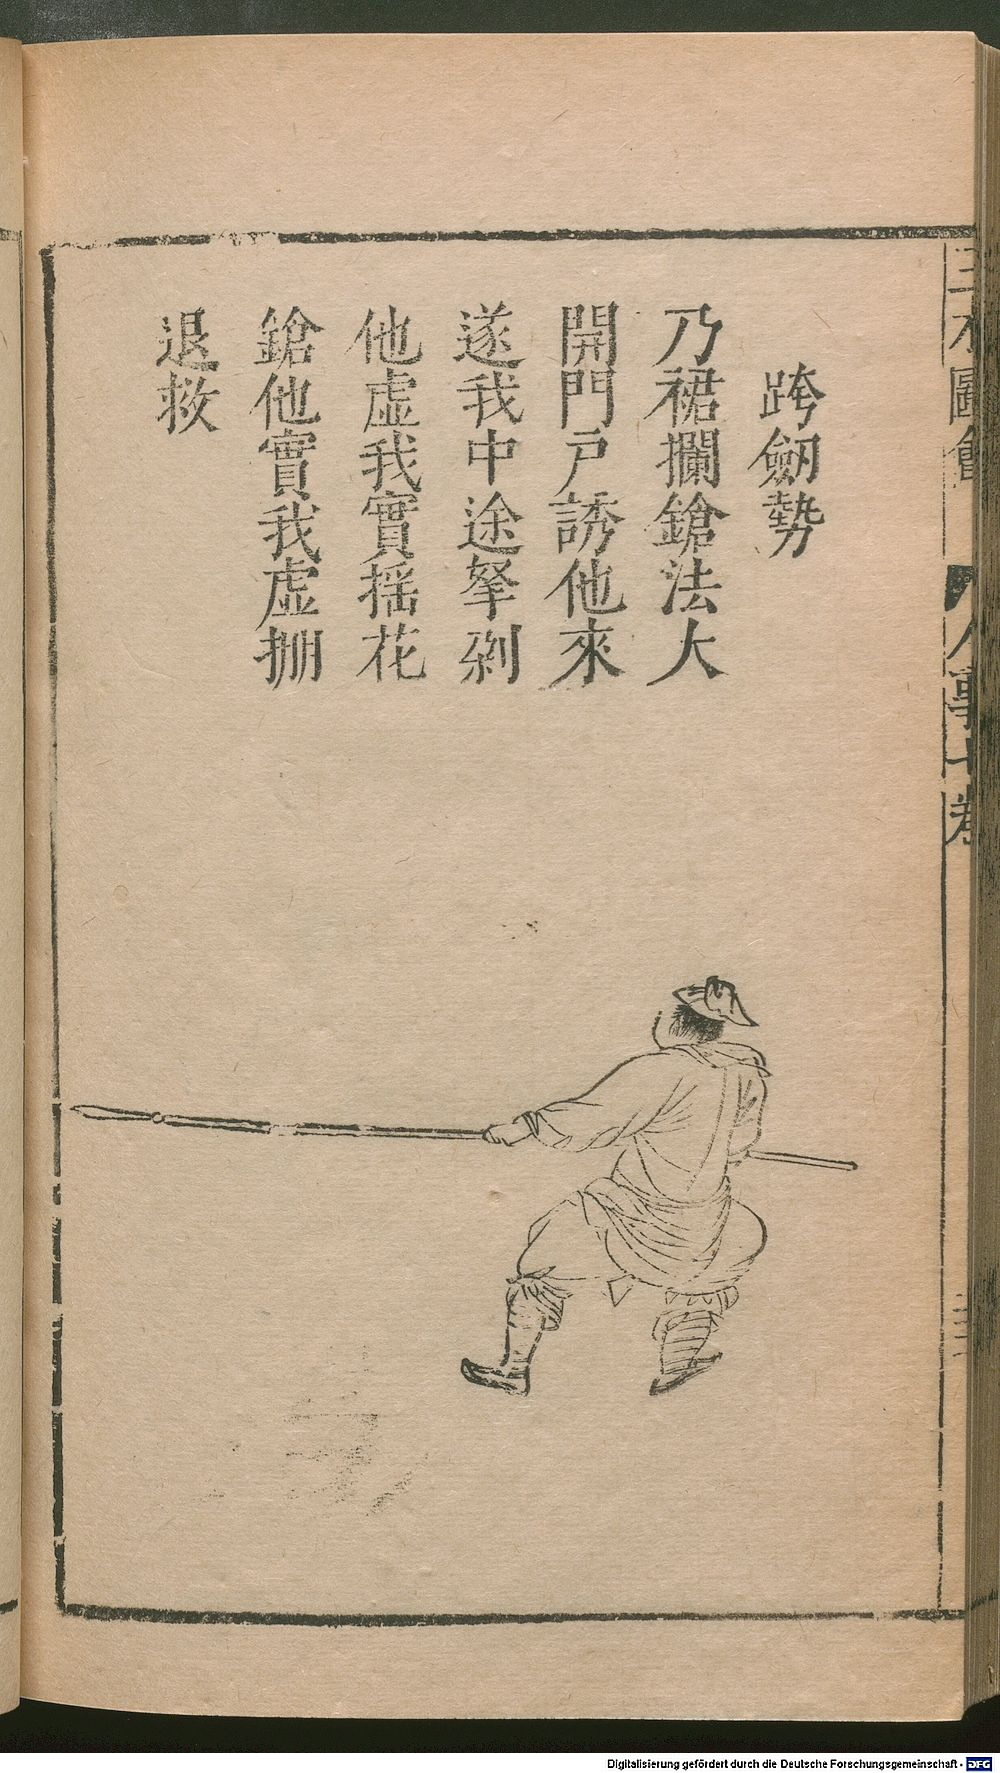 跨劒勢
乃裙攔鎗法大
開門戸誘他來
遂我中途拏剁
他虛我實揺花
鎗他實我虛掤
退救
圖會
人事七卷
Digitalisierung gefördert durch die Deutsche Forschungsgemeinschaft - DFG